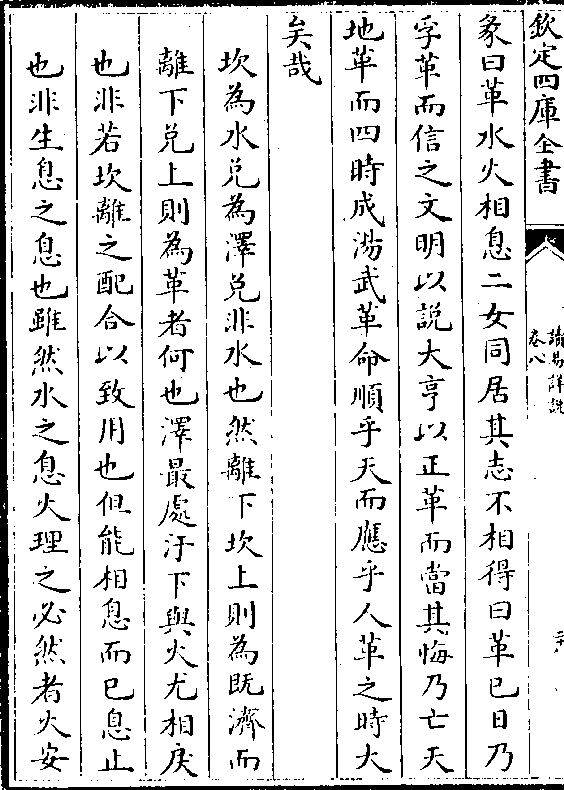 欽定四庫全書
讀易詳說
卷八
彖曰革水火相息二女同居其志不相得曰革已日乃
孚革而信之文明以説大亨以正革而當其悔乃亡天
地革而四時成湯武革命順乎天而應乎人革之時大
矣哉
坎為水兌為澤兌非水也然離下坎上則為既濟而
離下兌上則為革者何也澤最處汙下與火尤相戾
也非若坎離之配合以致用也但能相息而已息止
也非生息之息也雖然水之息火理之必然者火安